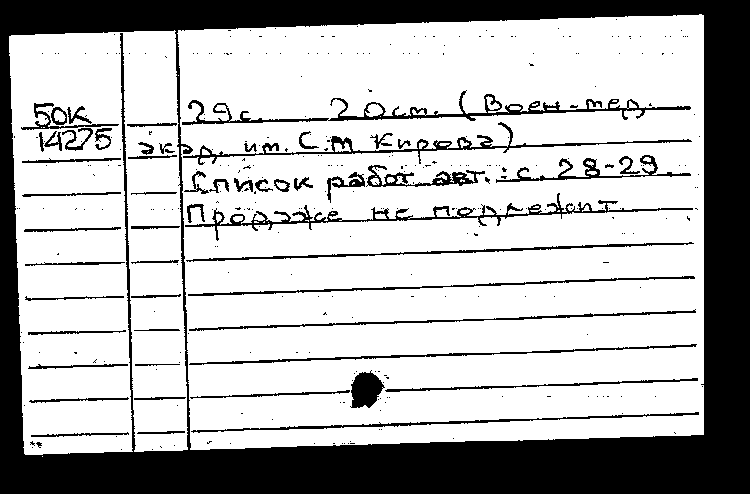 50к 29 с. 20 см. (Воен-мед.
14275 акад. им. С.М Кирова)
Список работ авт.: с. 28-29.
Продаже не подлежит.